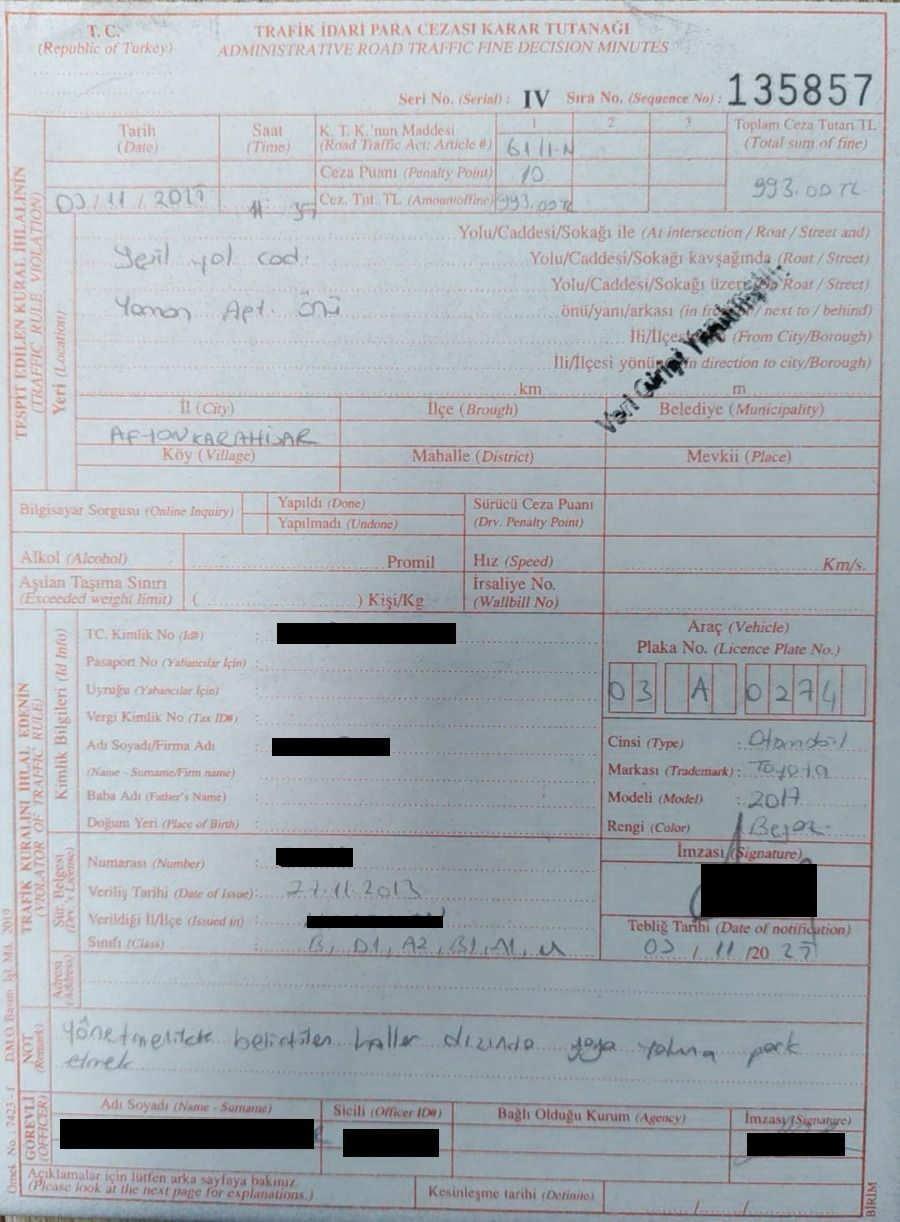 T. C.
(Republic of Turkey)
TRAFİK İDARİ PARA CEZASI KARAR TUTANAĞI
ADMINISTRATIVE ROAD TRAFFIC FINE DECISION MINUTES
Seri No. (Serial) : IV Sıra No. (Sequence No) : 135857
TESPİT EDİLEN KURAL İHLALİNİN
(TRAFFIC RULE VIOLATION)
Tarih
(Date)
Saat
(Time)
K. T. K.'nun Maddesi
(Road Traffic Act: Article #)
1 2 3
61/1-N
Toplam Ceza Tutarı TL
(Total sum of fine)
Ceza Puanı (Penalty Point) 10
Cez. Tut. TL (Amountoffine) 993.00 TL
993.00 TL
03/11/
Yeri (Location)
Yolu/Caddesi/Sokağı ile (At intersection / Roat / Street and)
Yeşil yol cad. Yolu/Caddesi/Sokağı kavşağında (Roat / Street)
Yolu/Caddesi/Sokağı Roat / Street)
Yaman Apt. önü önü/yanı/arkası (in / next to / behind)
(From City/Borough)
in direction to city/Borough)
Veri Girişi Yapılmıştır.
km m
İl (City) İlçe (Brough) Belediye (Municipality)
AFYONKARAHİSAR
Köy (Village) Mahalle (District) Mevkii (Place)
Bilgisayar Sorgusu (Online Inquiry)
Yapıldı (Done)
Yapılmadı (Undone)
Sürücü Ceza Puanı
(Drv. Penalty Point)
Alkol (Alcohol) Promil Hız (Speed) Km/s.
Aşılan Taşıma Sınırı
(Exceeded weight limit) ( ) Kişi/Kg
İrsaliye No.
(Wallbill No)
TRAFİK KURALINI İHLAL EDENİN
(VIOLATOR OF TRAFFIC RULE)
Kimlik Bilgileri (Id Info)
TC. Kimlik No (Id#) :
Pasaport No (Yabancılar İçin) :
Uyruğu (Yabancılar İçin) :
Vergi Kimlik No (Tax ID#) :
Adı Soyadı/Firma Adı :
(Name - Surname/Firm name) :
Baba Adı (Father's Name) :
Doğum Yeri (Place of Birth) :
Araç (Vehicle)
Plaka No. (Licence Plate No.)
03 A 0274
Cinsi (Type) : Otomobil
Markası (Trademark) : Toyota
Modeli (Model) : 2017
Rengi (Color) : Beyaz
Sür. Belgesi
(Drv.'s License)
Numarası (Number) :
Veriliş Tarihi (Date of Issue) : 27.11.2013
Verildiği İl/İlçe (Issued in) :
Sınıfı (Class) : B, D1, A2, B1, A1, M
İmzası (Signature)
Tebliğ Tarihi (Date of notification)
03 / 11 /20
Adresi
(Address)
NOT
(Remark)
Yönetmelikte belirtilen haller dışında yaya yoluna park
etmek
GÖREVLİ
(OFFICER)
Adı Soyadı (Name - Surname) Sicili (Officer ID#) Bağlı Olduğu Kurum (Agency) İmzası (Signature)
Açıklamalar için lütfen arka sayfaya bakınız
(Please look at the next page for explanations.)
Kesinleşme tarihi (Definite) / /
BİRİM
Örnek No. : 7423 - f DMO Basım İşl. Md. 2019